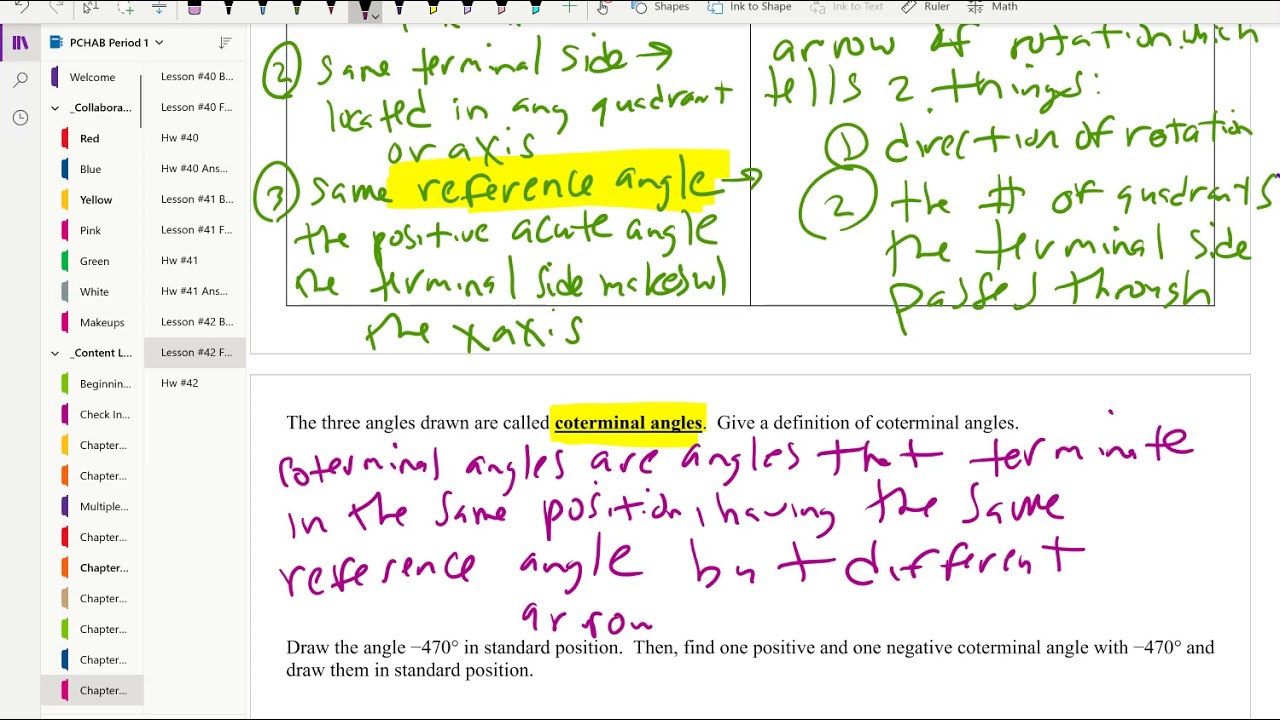 Shapes
Ink to Shape
Ink to Text
Ruler
Math
PCHAB Period 1
Welcome
_Collabora...
Red
Blue
Yellow
Pink
Green
White
Makeups
_Content L...
Beginnin...
Check In...
Chapter...
Chapter...
Multiple...
Chapter...
Chapter...
Chapter...
Chapter...
Chapter...
Chapter...
Lesson #40 B...
Lesson #40 F...
Hw #40
Hw #40 Ans...
Lesson #41 B...
Lesson #41 F...
Hw #41
Hw #41 Ans...
Lesson #42 B...
Lesson #42 F...
Hw #42
② same terminal side →
located in any quadrant
or axis
③ same reference angle →
the positive acute angle
the terminal side makes w/
the x axis
arrow of rotation which
tells 2 things:
① direction of rotation
② the # of quadrants
the terminal side
passes through
The three angles drawn are called coterminal angles. Give a definition of coterminal angles.
coterminal angles are angles that terminate
in the same position, having the same
reference angle but different
arrow
Draw the angle −470° in standard position. Then, find one positive and one negative coterminal angle with −470° and
draw them in standard position.